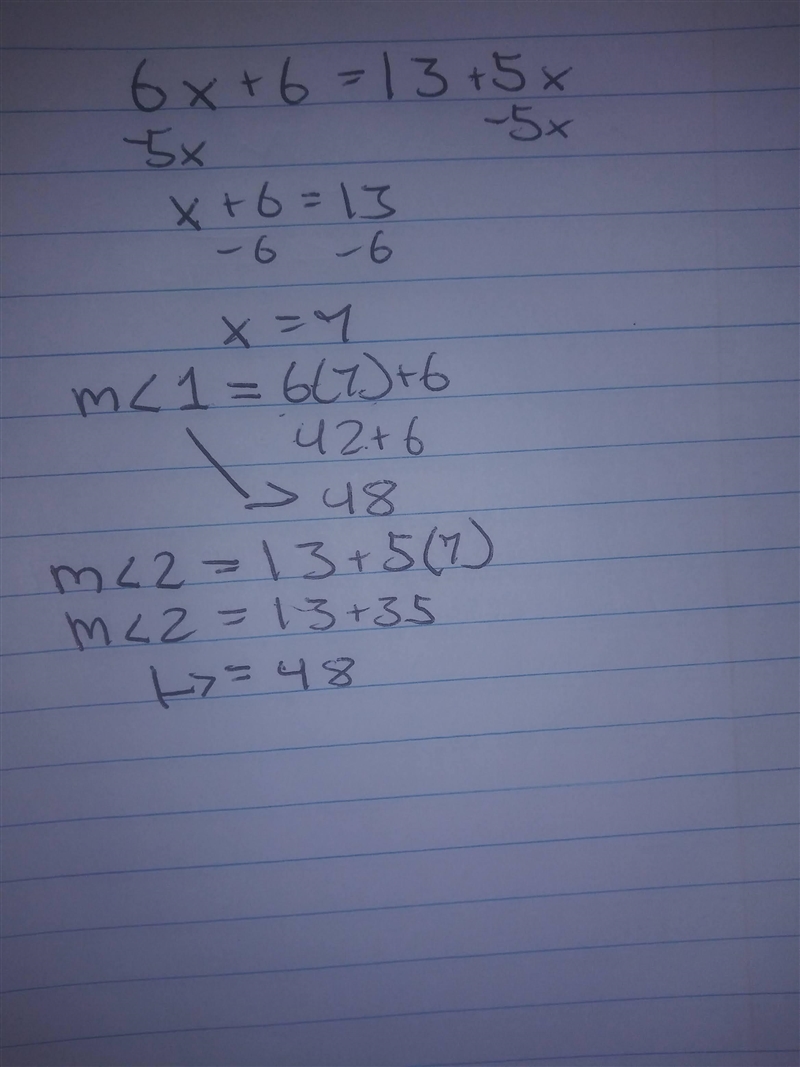 6x+6=13+5x
-5x -5x
x+6=13
-6 -6
x=7
m<1=6(7)+6
42+6
48
m<2=13+5(7)
m<2=13+35
=48